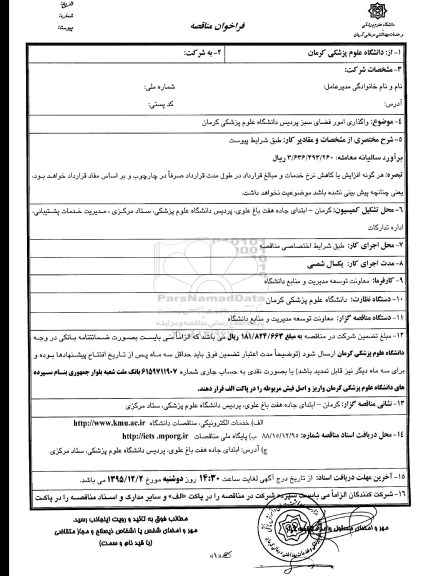 تاریخ:
شماره:
پیوست:
فراخوان مناقصه
دانشگاه علوم پزشکی
و خدمات بهداشتی درمانی کرمان
۱- از: دانشگاه علوم پزشکی کرمان
۲- به شرکت:
۳- مشخصات شرکت:
نام و نام خانوادگی مدیرعامل:
شماره ملی:
آدرس:
کد پستی:
۴- موضوع: واگذاری امور فضای سبز پردیس دانشگاه علوم پزشکی کرمان
۵- شرح مختصری از مشخصات و مقادیر کار: طبق شرایط پیوست
برآورد سالیانه معامله: ۳/۶۳۶/۴۹۳/۲۶۰ ریال
تبصره: هر گونه افزایش یا کاهش نرخ خدمات و مبالغ قرارداد در طول مدت قرارداد صرفاً در چارچوب و بر اساس مفاد قرارداد خواهد بود،
یعنی چنانچه پیش بینی نشده باشد موضوعیت نخواهد داشت.
۶- محل تشکیل کمیسیون: کرمان – ابتدای جاده هفت باغ علوی، پردیس دانشگاه علوم پزشکی، ستاد مرکزی ، مدیریت خدمات پشتیبانی،
اداره تدارکات
۷- محل اجرای کار: طبق شرایط اختصاصی مناقصه
۸- مدت اجرای کار: یکسال شمسی
۹- کارفرما: معاونت توسعه مدیریت و منابع دانشگاه
۱۰- دستگاه نظارت: دانشگاه علوم پزشکی کرمان
ParsNamadData
۱۱- دستگاه مناقصه گزار: معاونت توسعه مدیریت و منابع دانشگاه
۱۲- مبلغ تضمین شرکت در مناقصه به مبلغ ۱۸۱/۸۲۴/۶۶۳ ریال می باشد که الزاماً می بایست بصورت ضمانتنامه بانکی در وجه
دانشگاه علوم پزشکی کرمان ارسال شود (توضیحاً مدت اعتبار تضمین فوق باید حداقل سه ماه پس از تاریخ افتتاح پیشنهادها بوده و
برای سه ماه دیگر نیز قابل تمدید باشد) یا بصورت نقدی به حساب جاری شماره ۶۱۵۹۷۱۱۹۰۷ بانک ملت شعبه بلوار جمهوری بنام سپرده
های دانشگاه علوم پزشکی کرمان واریز و اصل فیش مربوطه را در پاکت الف قرار دهند.
۱۳- نشانی مناقصه گزار: کرمان – ابتدای جاده هفت باغ علوی، پردیس دانشگاه علوم پزشکی، ستاد مرکزی
الف) خدمات الکترونیکی، مناقصات دانشگاه http://www.kmu.ac.ir
۱۴- محل دریافت اسناد مناقصه شماره: ۸۸/۱۰/۱۲/۹۵ ب) پایگاه ملی مناقصات http://iets .mporg.ir
ج) آدرس: ابتدای جاده هفت باغ علوی، پردیس دانشگاه علوم پزشکی، ستاد مرکزی
۱۵- آخرین مهلت دریافت اسناد: از تاریخ درج آگهی لغایت ساعت ۱۴:۳۰ روز دوشنبه مورخ ۱۳۹۵/۱۲/۲ می باشد.
۱۶- شرکت کنندگان الزاماً می بایست سپرده شرکت در مناقصه را در پاکت «الف» و سایر مدارک و اسناد مناقصه را در پاکت
مهر و امضای مسئول
مطالب فوق به تائید و رویت اینجانب رسید.
مهر و امضای شخص یا اشخاص ذیصلاح و مجاز متقاضی
(با قید نام و سمت)